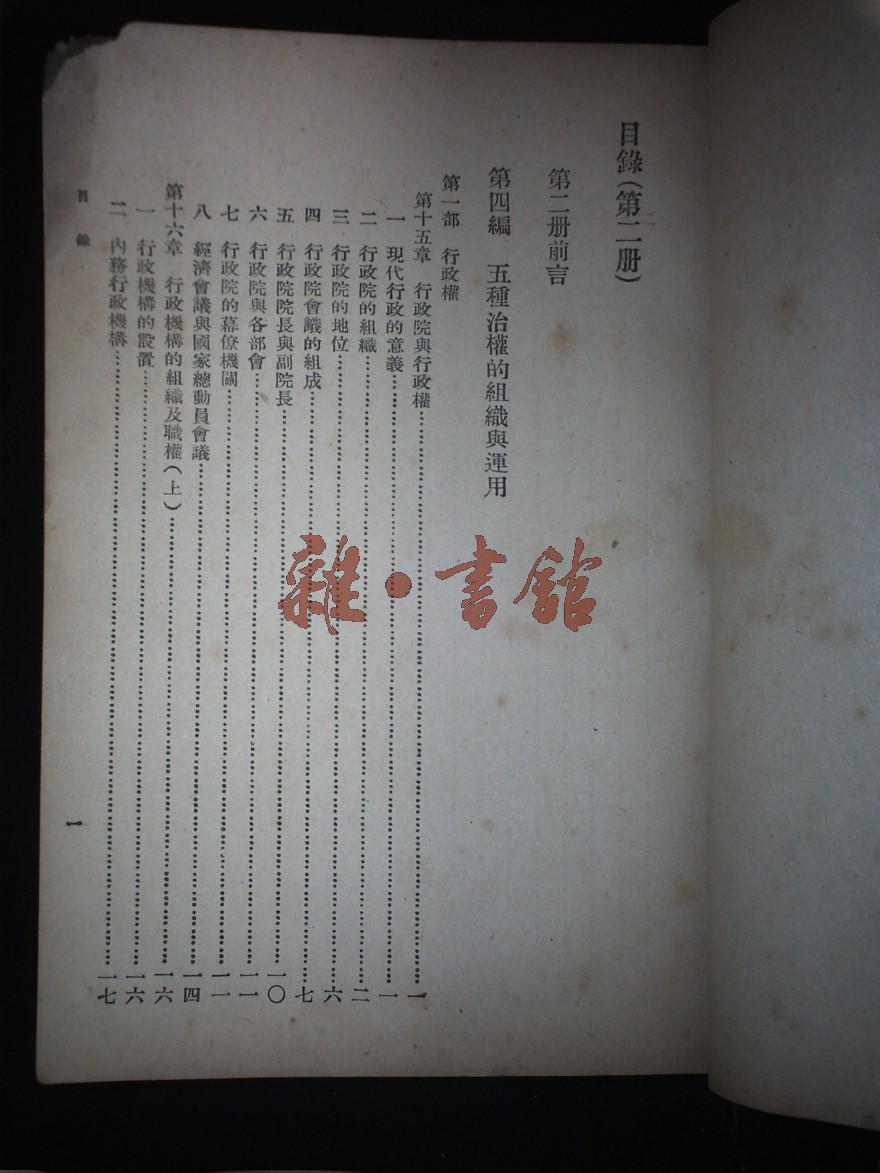 目錄(第二册)
第二册前言
第四編 五種治權的組織與運用
第一部 行政權
第十五章 行政院與行政權……一
一 現代行政的意義……一
二 行政院的組織……二
三 行政院的地位……六
四 行政院會議的組成……七
五 行政院院長與副院長……一〇
六 行政院與各部會……一一
七 行政院的幕僚機關……一一
八 經濟會議與國家總動員會議……一四
第十六章 行政機構的組織及職權(上)……一六
一 行政機構的設置……一六
二 內務行政機構……一七
目錄
一
雜·書館